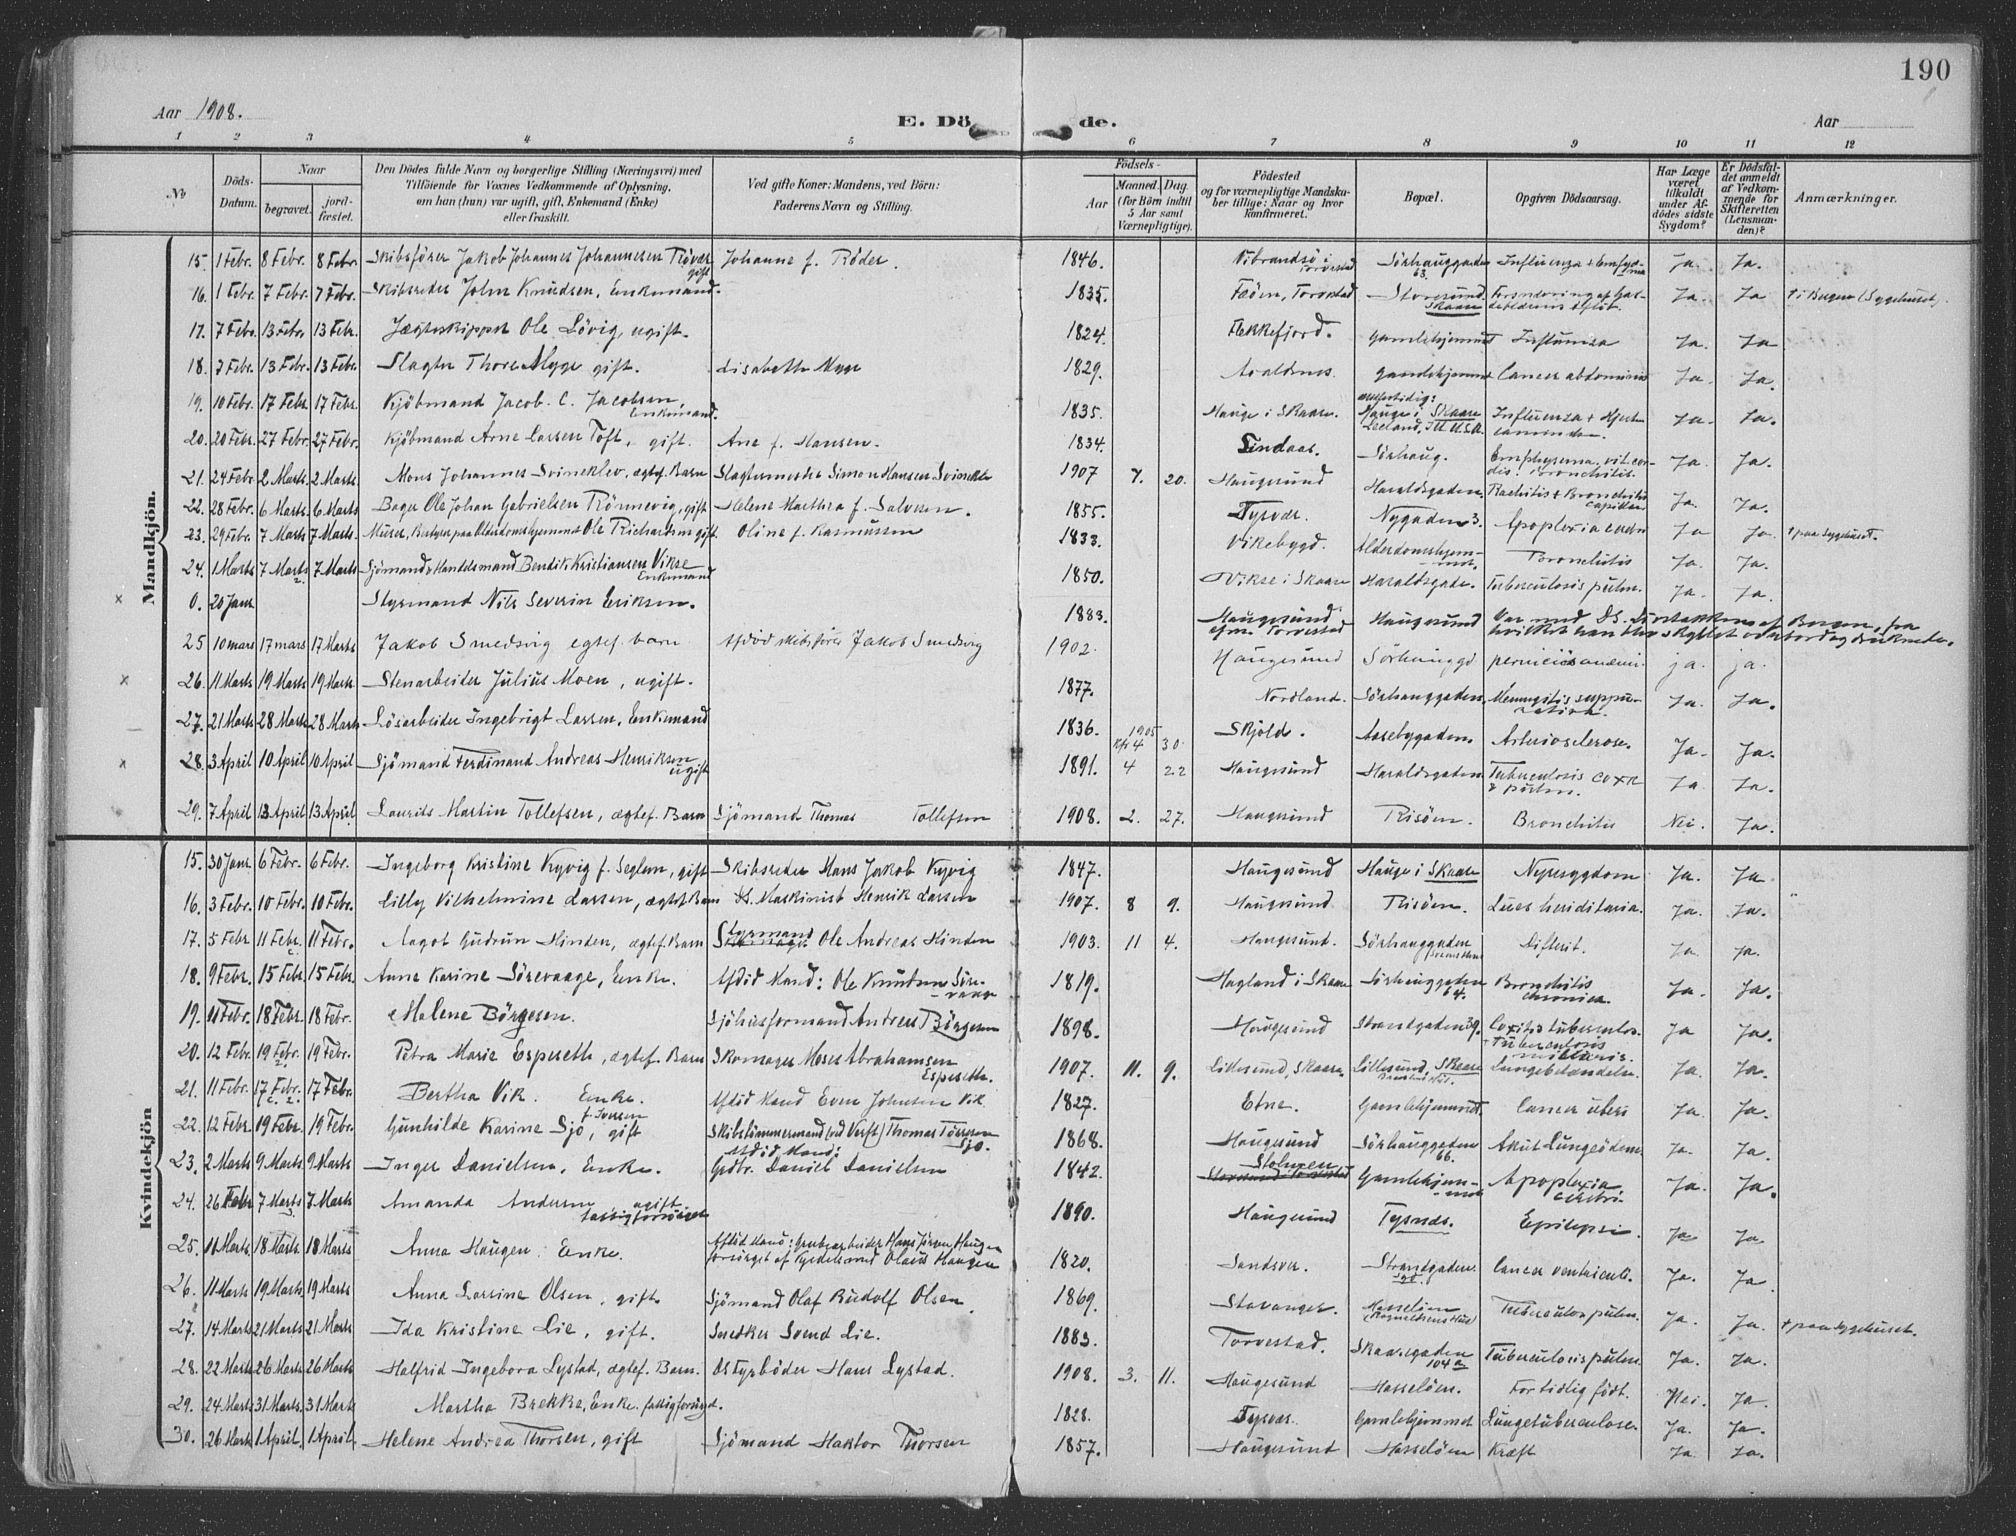 190
Aar 1908.
E. Dö de.
Aar
1 2 3 4 5 6 7 8 9 10 11 12
No
Döds-Datum.
Naar
begravet.
jordfæstet.
Den Dödes fulde Navn og borgerlige Stilling (Næringsvei) med
Tilföiende for Voxnes Vedkommende af Oplysning,
om han (hun) var ugift, gift, Enkemand (Enke)
eller fraskilt.
Ved gifte Koner: Mandens, ved Börn:
Faderens Navn og Stilling.
Födsels-
Aar
Maaned. Dag.
(for Börn indtil
5 Aar samt
Værnepligtige).
Födested
og for værnepligtige Mandska-
ber tillige: Naar og hvor
konfirmeret.
Bopæl.
Opgiven Dödsaarsag.
Har Læge
været
tilkaldt
under Af-
dödes sidste
Sygdom?
Er Dödsfal-
det anmeldt
af Vedkom-
mende for
Skifteretten
(Lensman-
den)?
Anmærkninger.
Mandkjön.
15. 1 Febr. 8 Febr. 8 Febr. Skibsförer Jakob Johannes Johannesen Rövær gift Johanne f. Röder. 1846. Vibrandsö i Torvestad Sörhauggaden 63. Influenza + Emfysema Ja. Ja.
16. 1 Febr. 7 Febr. 7 Febr. Skibsreder John Knudsen, Enkemand. 1835. Fæöen, Torvestad Storesund Skaare Ja. Ja † i Bergen (Sygehuset).
17. 7 Febr. 13 Febr. 13 Febr. Jægteskipper Ole Lövig, ugift. 1824. Flekkefjord. Gamlehjemmet Influenza Ja. Ja
18. 7 Febr. 13 Febr. 13 Febr. Slagter Thore Myge gift. Lisabeth Myge 1829. Avaldsnes. Gamlehjemmet Cancer abdominis Ja. Ja.
19. 10 Febr. 17 Febr. 17 Febr. Kjöbmand Jacob. C. Jacobsen, Enkemand. 1835. Hauge i Skaare. Hauge i Skaare Leeland, Ill. U.S.A. Influenza + Ja. Ja.
20. 20 Febr. 27 Febr. 27 Febr. Kjöbmand Arne Larsen Toft, gift. Ane f. Hansen. 1834. Lindaas. Sörhaug. Emphysema, vit. cordis. Bronchitis. Ja. Ja.
21. 24 Febr. 2 Marts 2 Marts. Mons Johannes Svineklev, ægtef. Barn Slagtermester Simon Hansen Svineklev 1907 7. 20. Haugesund Haraldsgaden. Rachitis + Bronchitis capillær Ja. Ja.
22. 28 Febr. 6 Marts 6 Marts Bager Ole Johan Gabrielsen Rönnevig, gift Helene Marthea f. Salvesen. 1855. Tysvær. Nygaden 3. Apoplexia cerebri Ja Ja. † paa Sygehuset.
23. 29 Febr. 7 Marts 7 Marts. Murer, Bestyrer paa Alderdomshjemmet Ole Richardsen gift. Oline f. Rasmussen 1833. Vikebygd. Alderdomshjemmet. Bronchitis Ja. Ja.
24. 1 Marts 7 Marts 7 Marts Sjömand & Handelsmand Bendik Kristiansen Vikse Enkemand 1850. Vikse i Skaare Haraldsgade. Tuberculosis pulm. Ja. Ja.
× 0. 20 Janr Styrmand Nils Severin Eriksen. 1883. Haugesund Torvestad Haugesund Var med DS. af Bergen, fra hvilket han blev skyllet overbord og druknede.
25 10 mars 17 mars 17 Marts Jakob Smedsvig egtef. barn Afdöd skibsförer Jakob Smedsvig 1902. Haugesund Sörhauggd perniciös anæmi. ja. ja.
× 26. 11 Marts 19 Marts 19 Marts Stenarbeider Julius Moen, ugift. 1877. Nordland. Sörhauggaden. Meningitis suppurativa. Ja. Ja.
27. 21 Marts 28 Marts 28 Marts Lösarbeider Ingebrigt Larsen, Enkemand 1836. Skjold. Aasebygaden. Arteriosclerose. Ja. Ja.
× 28. 3 April 10 April 10 April Sjömand Ferdinand Andreas Henriksen ugift 1891. 1905 4 30. 4 22 Haugesund Haraldsgaden Tuberculosis coxæ & pulm. Ja Ja.
29. 7 April 13 April 13 April Laurits Martin Tollefsen, ægtef. Barn Sjömand Thomas Tollefsen 1908. 2. 27. Haugesund Risöen. Bronchitis Nei. Ja.
Kvindekjön
15. 30 Janr. 6 Febr. 6 Febr. Ingeborg Kristine Kyvig f. Seglem, gift Skibsreder Hans Jakob Kyvig 1847. Haugesund Hauge i Skaare Nyresygdom Ja. Ja
16. 3 Febr. 10 Febr. 10 Febr. Lilly Vilhelmine Larsen, ægtef. Barn Maskinist Henrik Larsen 1907. 8 9. Haugesund Risöen. Lues hereditaria. Ja. Ja.
17. 5 Febr. 11 Febr. 11 Febr. Aagot Gudrun Hinden, ægtef. Barn Styrmand Ole Andreas Hinden 1903. 11 4. Haugesund. Sörhauggaden Difterit. Ja Ja.
18. 9 Febr. 15 Febr. 15 Febr. Anne Karine Sörevaage, Enke. Afdöd Mand: Ole Knutsen Sörevaage 1819. Hagland i Skaare Sörhauggaden 64. Bronchitis chronica. Ja. Ja.
19. 11 Febr. 18 Febr. 18 Febr. Malene Börgesen. Sjöhusformand Andreas Börgesen 1898. Haugesund Strandgaden 39. Coxitis tuberculos. + Tuberculosis miliaris. Ja Ja.
20. 12 Febr. 19 Febr. 19 Febr. Petra Marie Espeseth, ægtef. Barn Skomager Moses Abrahamsen Espeseth. 1907. 11. 9. Lillesund, Skaare. Lillesund, Skaare Lungebetændelse. Ja. Ja.
21. 11 Febr. 17 Febr. 17 Febr. Bertha Vik. Enke. Afdöd Mand Even Johnsen Vik 1827. Etne. Gamlehjemmet. Cancer uteri Ja. Ja.
22. 12 Febr. 19 Febr. 19 Febr. Gunhilde Karine Sjo, f. Iversen gift Skibstömmermand (ved Verft) Thomas Törresen Sjo. 1868. Haugesund Sörhauggaden 66. Akut Lungeödem Ja. Ja.
23. 2 Marts 9 Marts. 9 Marts. Inger Danielsen, Enke. Afdöd Mand: Gdbr. Daniel Danielsen 1842. Stolmen Gamlehjemmet Apoplexia cerebri. Ja. Ja.
24. 26 Febr 7 Marts 7 Marts Amanda Andersen ugift fattigforsörget 1890. Haugesund Tysnæs. Epilepsi. Ja Ja.
25. 11 Marts. 18 Marts. 18 Marts Anna Haugen. Enke. Afdöd Mand: Grubearbeider Hans Jörgen Haugen forsörget af Olaus Haugen 1820. Sandsvær. Strandgaden. Cancer ventriculi. Ja. Ja
26. 11 Marts 19 Marts 19 Marts Anna Lovise Olsen, gift. Sjömand Olaf Rudolf Olsen. 1869. Stavanger. Hasselöen Tuberculos. pulm. Ja. Ja. † paa Sygehuset.
27. 14 Marts 21 Marts 21 Marts Ida Kristine Lie, gift. Snedker Svend Lie. 1883. Torvestad. Skaaregaden 104 a Tuberculosis pulm. Ja. Ja.
28. 22 Marts 26 Marts 26 Marts Halfrid Ingebora Lystad, ægtef. Barn. Fyrböder Hans Lystad. 1908. 3. 11. Haugesund Hasselöen. For tidlig födt. Nei. Ja
29. 24 Marts 31 Marts. 31 Marts Martha Brekke, Enke. fattigforsörget. 1828. Tysvær. Gamlehjemmet Lungetuberculose. Ja. Ja.
30. 26 Marts 1 April. 1 April. Helene Andrea Thorsen, gift Sjömand Haktor Thorsen 1857. Haugesund Hasselöen Kræft Ja. Ja.